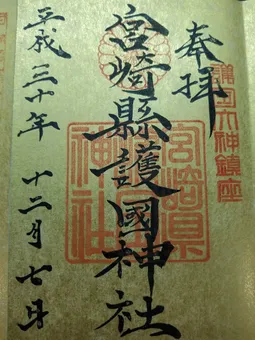 奉拝
宮崎縣護國神社
平成三十年 十二月 七日
護国大神鎮座
宮崎県
護国
神社